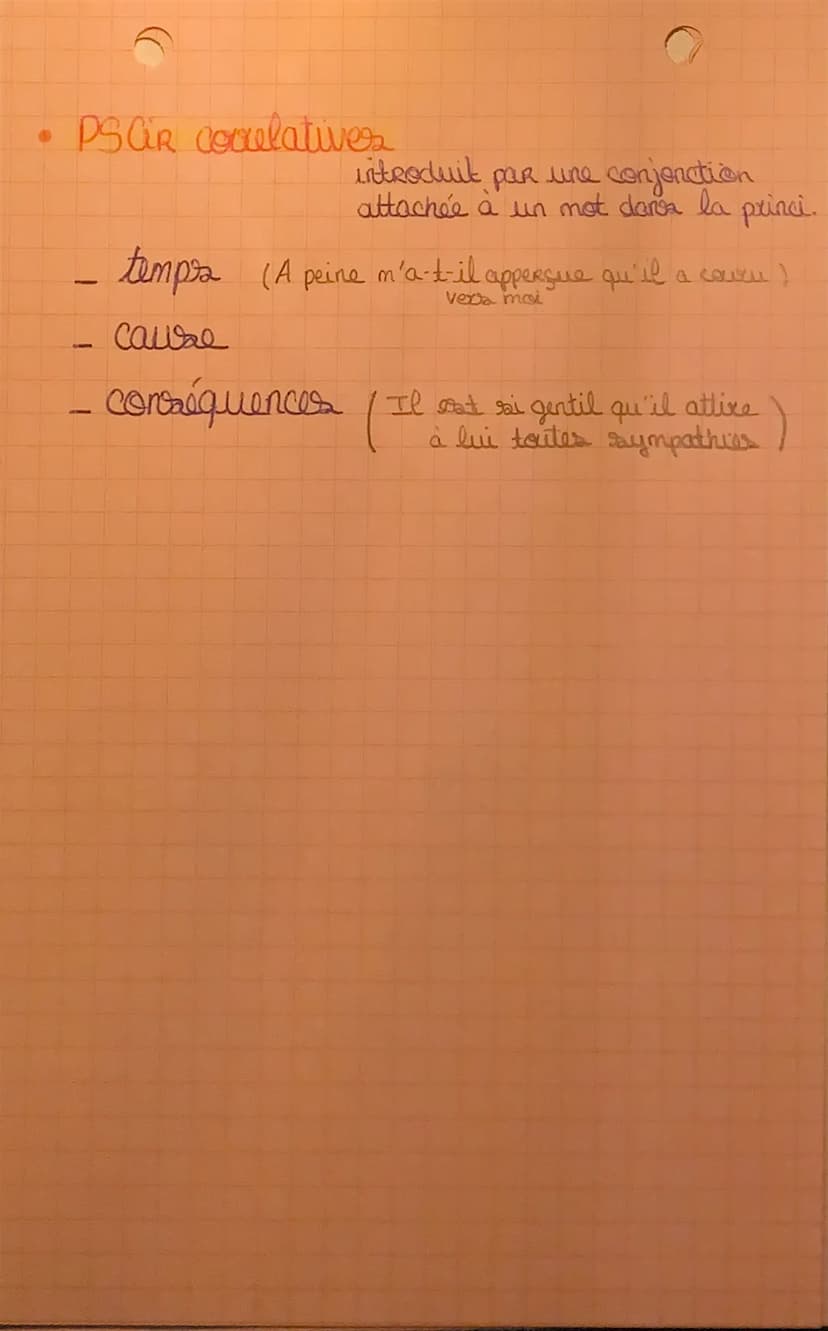 • PSCir correlatives
introduit par une conjonction
attachée à un mot dans la princi.
- temps (A peine m'a-t-il apperçue qu'il a couru)
vers moi
- cause
- conséquences (Il est si gentil qu'il attire
à lui toutes sympathies)